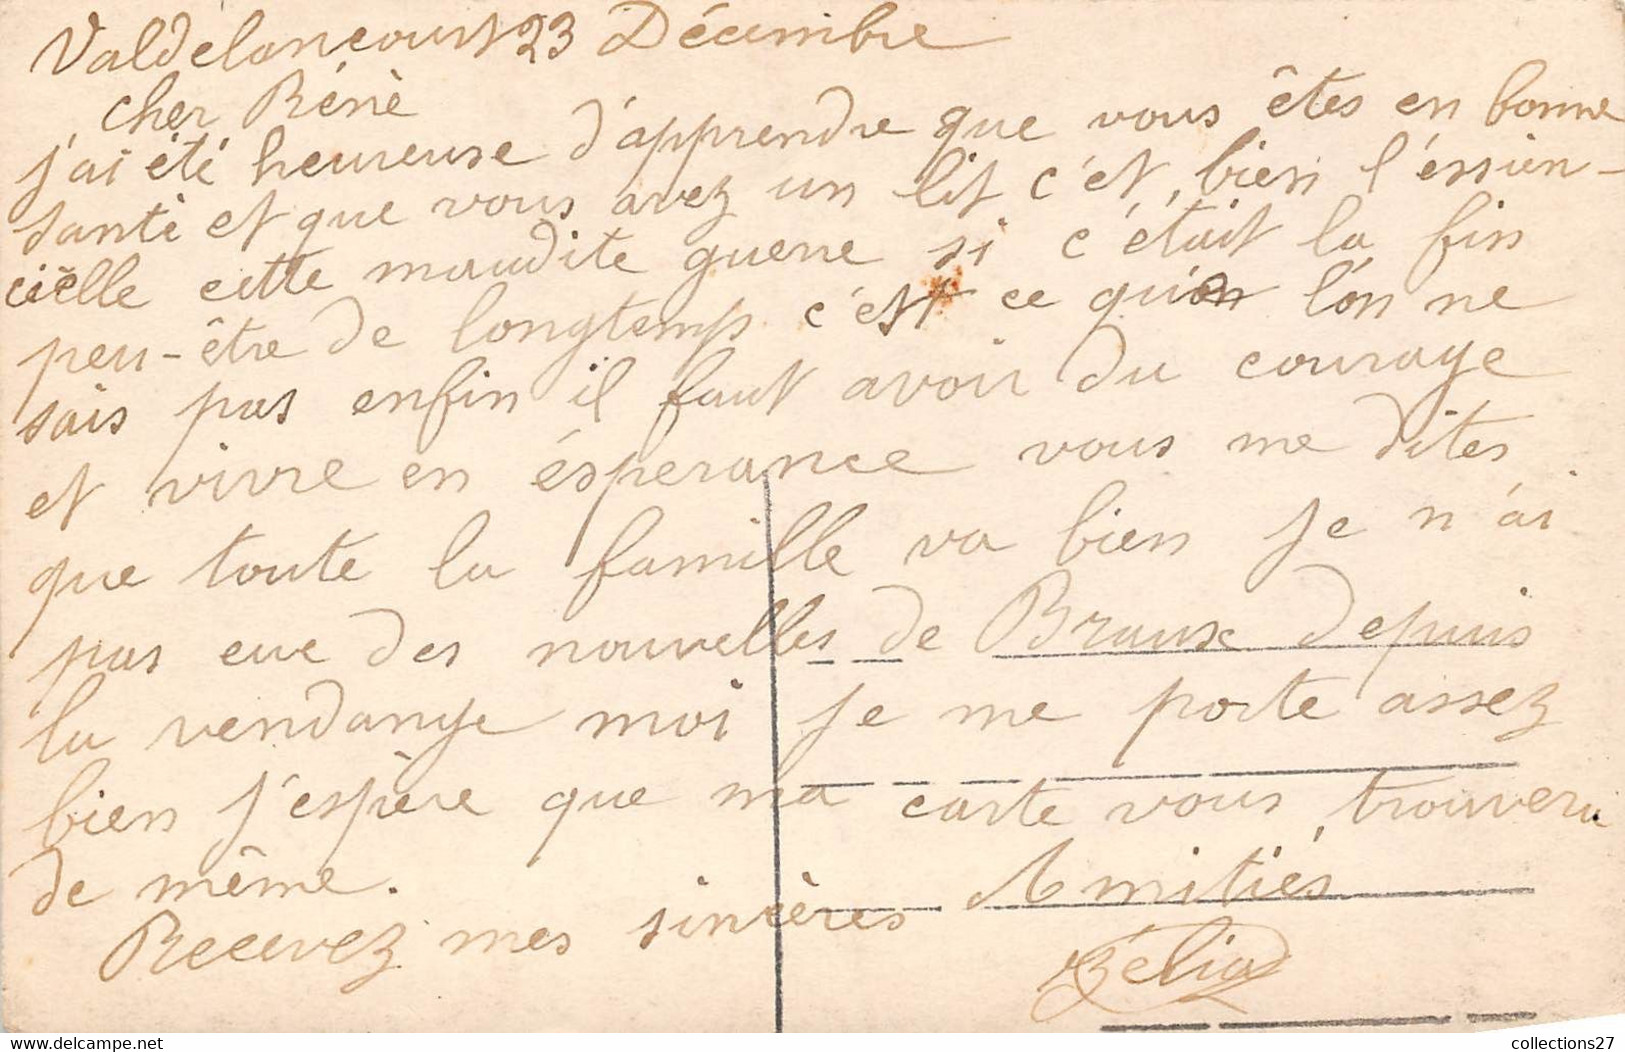 Valdelancourt 23 Décembre
cher Rénè
j'ai été heureuse d'apprendre que vous êtes en bonne
santé et que vous avez un lit c'ét, bien l'éssien-
cièlle cette maudite guerre si c'était la fin
peu-être de longtemps c'est ce qu'on l'on ne
sais pas enfin il faut avoir du courage
et vivre en ésperance vous me dites
que toute la famille va bien je n'ai
pas eue des nouvelles de Braux depuis
la vendange moi je me porte assez
bien j'espère que ma carte vous trouvera
de même.
Recevez mes sincères Amitiés
Zélia
collections27